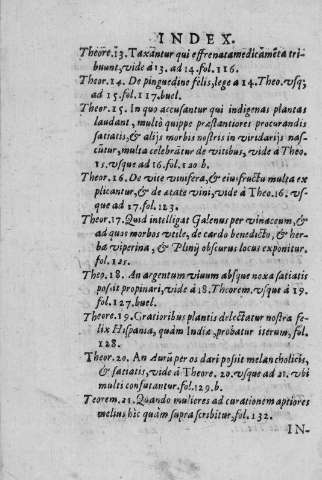 INDEX.
Theore. 13. Taxãntur qui effrenata medicãmẽta tri-
buunt, vide à 13. ad 14. fol. 116.
Theor. 14. De pinguedine felis, lege a 14. Theo. vsq;
ad 15. fol. 117. buel.
Theor. 15. In quo accusantur qui indigenas plantas
laudant, multò quippe præstantiores procurandis
satiatis, & alijs morbis nostris in viridarijs nas-
cũtur, multa celebrãtur de vitibus, vide à Theo.
15. vsque ad 16. fol. 120 b.
Theor. 16. De vite vinifera, & eius fructu multa ex
plicantur, & de ætate vini, vide à Theo. 16. vs-
que ad 17. fol. 123.
Theor. 17. Quid intelligat Galenus per vinaceum, &
ad quos morbos vtile, de cardo benedicto, & her-
ba viperina, & Plinij obscurus locus exponitur.
fol. 125.
Theo. 18. An argentum viuum absque noxa satiatis
possit propinari, vide à 18. Theorem. vsque à 19.
fol. 127. buel.
Theore. 19. Gratioribus plantis delectatur nostra fe-
lix Hispania, quàm India, probatur iterum, fol.
128.
Theor. 20. An Aurũ per os dari possit melancholicis,
& satiatis, vide à Theore. 20. vsque ad 21. vbi
multi confutantur. fol. 129. b.
Teorem. 21. Quando mulieres ad curationem aptiores
melius hîc quàm supra scribitur, fol. 132.
IN-